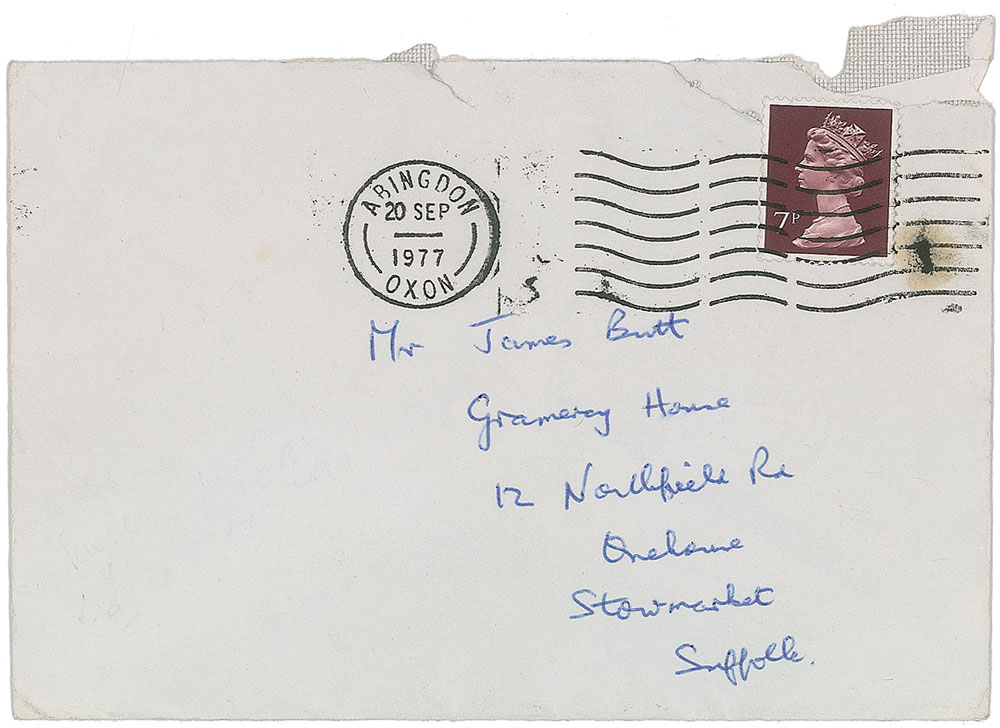 ABINGDON
20 SEP
1977
OXON
7P
Mr James Butt
Gramercy House
12 Northfield Rd
Onehouse
Stowmarket
Suffolk.